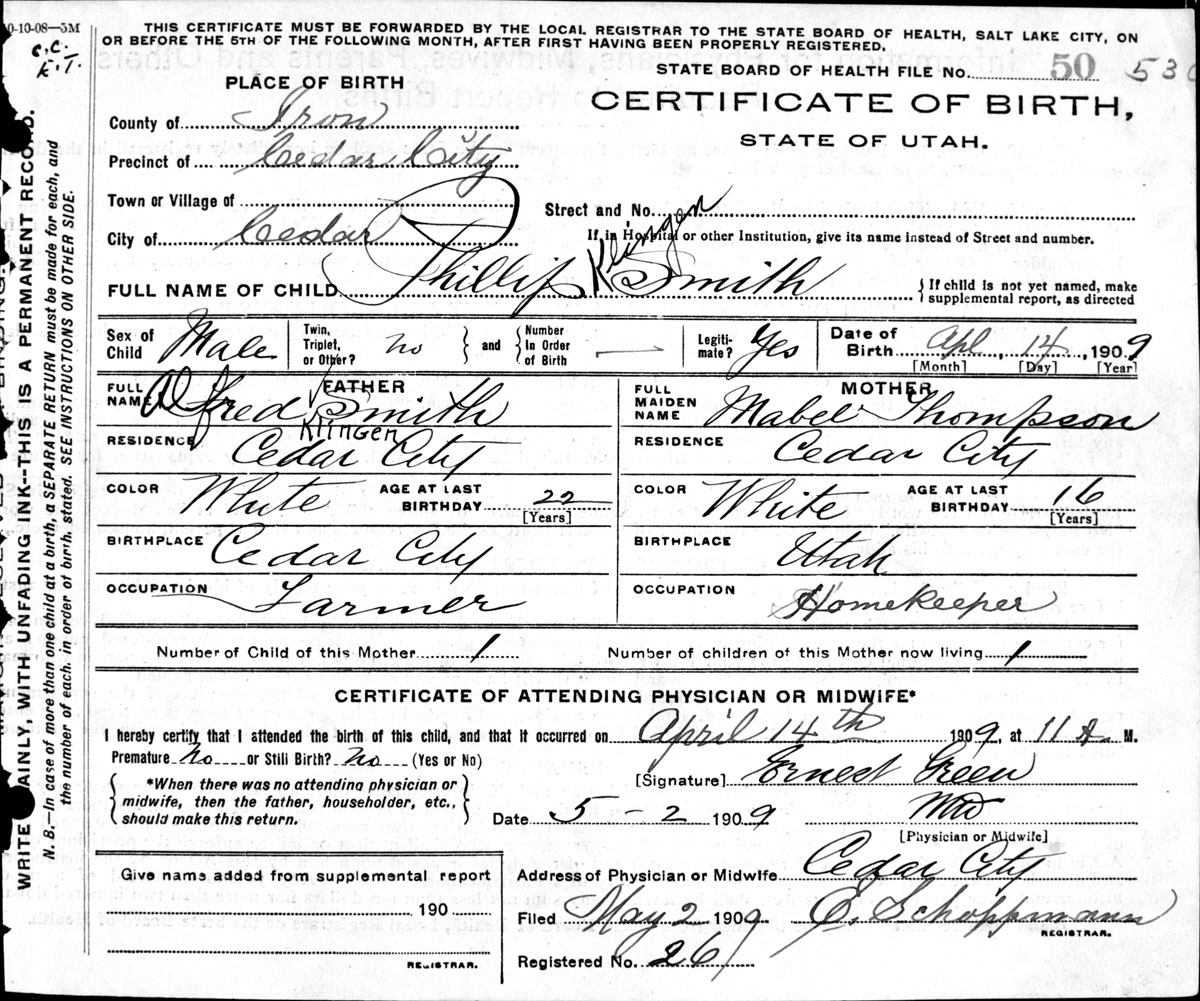 0-10-08—5M
C.C.
K.T.
THIS CERTIFICATE MUST BE FORWARDED BY THE LOCAL REGISTRAR TO THE STATE BOARD OF HEALTH, SALT LAKE CITY, ON
OR BEFORE THE 5TH OF THE FOLLOWING MONTH, AFTER FIRST HAVING BEEN PROPERLY REGISTERED.
STATE BOARD OF HEALTH FILE No. 50 530
PLACE OF BIRTH
CERTIFICATE OF BIRTH,
STATE OF UTAH.
County of Iron
Precinct of Cedar City
Town or Village of
Street and No.
City of Cedar
If in Hospital or other Institution, give its name instead of Street and number.
Klingen
FULL NAME OF CHILD Phillip Smith
If child is not yet named, make
supplemental report, as directed
Sex of Child Male
Twin, Triplet, or Other? no
and
Number In Order of Birth —
Legitimate? Yes
Date of Birth Apl, 14, 1909
[Month] [Day] [Year]
FATHER
FULL NAME Alfred Smith
Klingen
RESIDENCE Cedar City
COLOR White AGE AT LAST BIRTHDAY 22
[Years]
BIRTHPLACE Cedar City
OCCUPATION Farmer
MOTHER
FULL MAIDEN NAME Mabel Thompson
RESIDENCE Cedar City
COLOR White AGE AT LAST BIRTHDAY 16
[Years]
BIRTHPLACE Utah
OCCUPATION Homekeeper
Number of Child of this Mother 1 Number of children of this Mother now living 1
CERTIFICATE OF ATTENDING PHYSICIAN OR MIDWIFE*
I hereby certify that I attended the birth of this child, and that it occurred on April 14th 1909, at 11 A. M.
Premature No or Still Birth? No (Yes or No)
*When there was no attending physician or
midwife, then the father, householder, etc.,
should make this return.
[Signature] Ernest Green
Date 5-2 1909 MD
[Physician or Midwife]
Give name added from supplemental report
190
REGISTRAR.
Address of Physician or Midwife Cedar City
Filed May 2 1909 E. Schoppmann
REGISTRAR.
Registered No. 26
WRITE PLAINLY, WITH UNFADING INK--THIS IS A PERMANENT RECORD.
N. B.—In case of more than one child at a birth, a SEPARATE RETURN must be made for each, and
the number of each, in order of birth, stated. SEE INSTRUCTIONS ON OTHER SIDE.